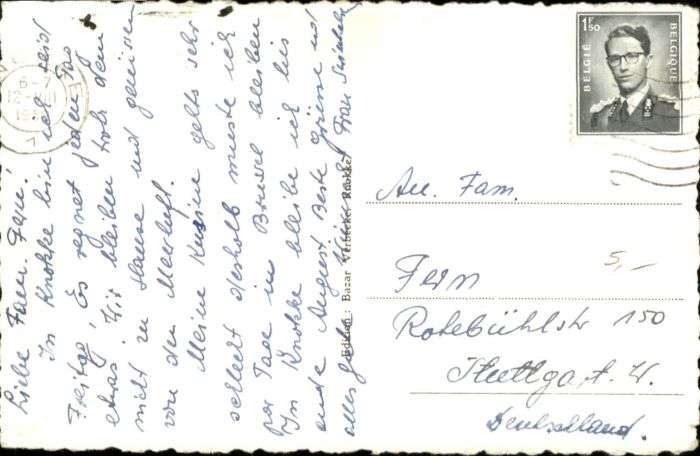 Liebe Fam. Fern!
In Knokke bin ich seid
Freitag, Es regnet jeden Tag
etwas. Wir bleiben trotz dem
nicht zu Hause und geniesen
von der Meerluft.
Meine Kusine gehts sehr
schlecht deshalb muste ich
par Tage in Brüssel bleiben
In Knokke bleibe ich bis
ende August Beste Grüsse und
alles Frau
Edition : Bazar Verbecke, Knokke
1F50
BELGIË
BELGIQUE
6-7
An. Fam.
Fern
Rotebühlstr 150
Stuttgart. W.
Deutschland.
5,-